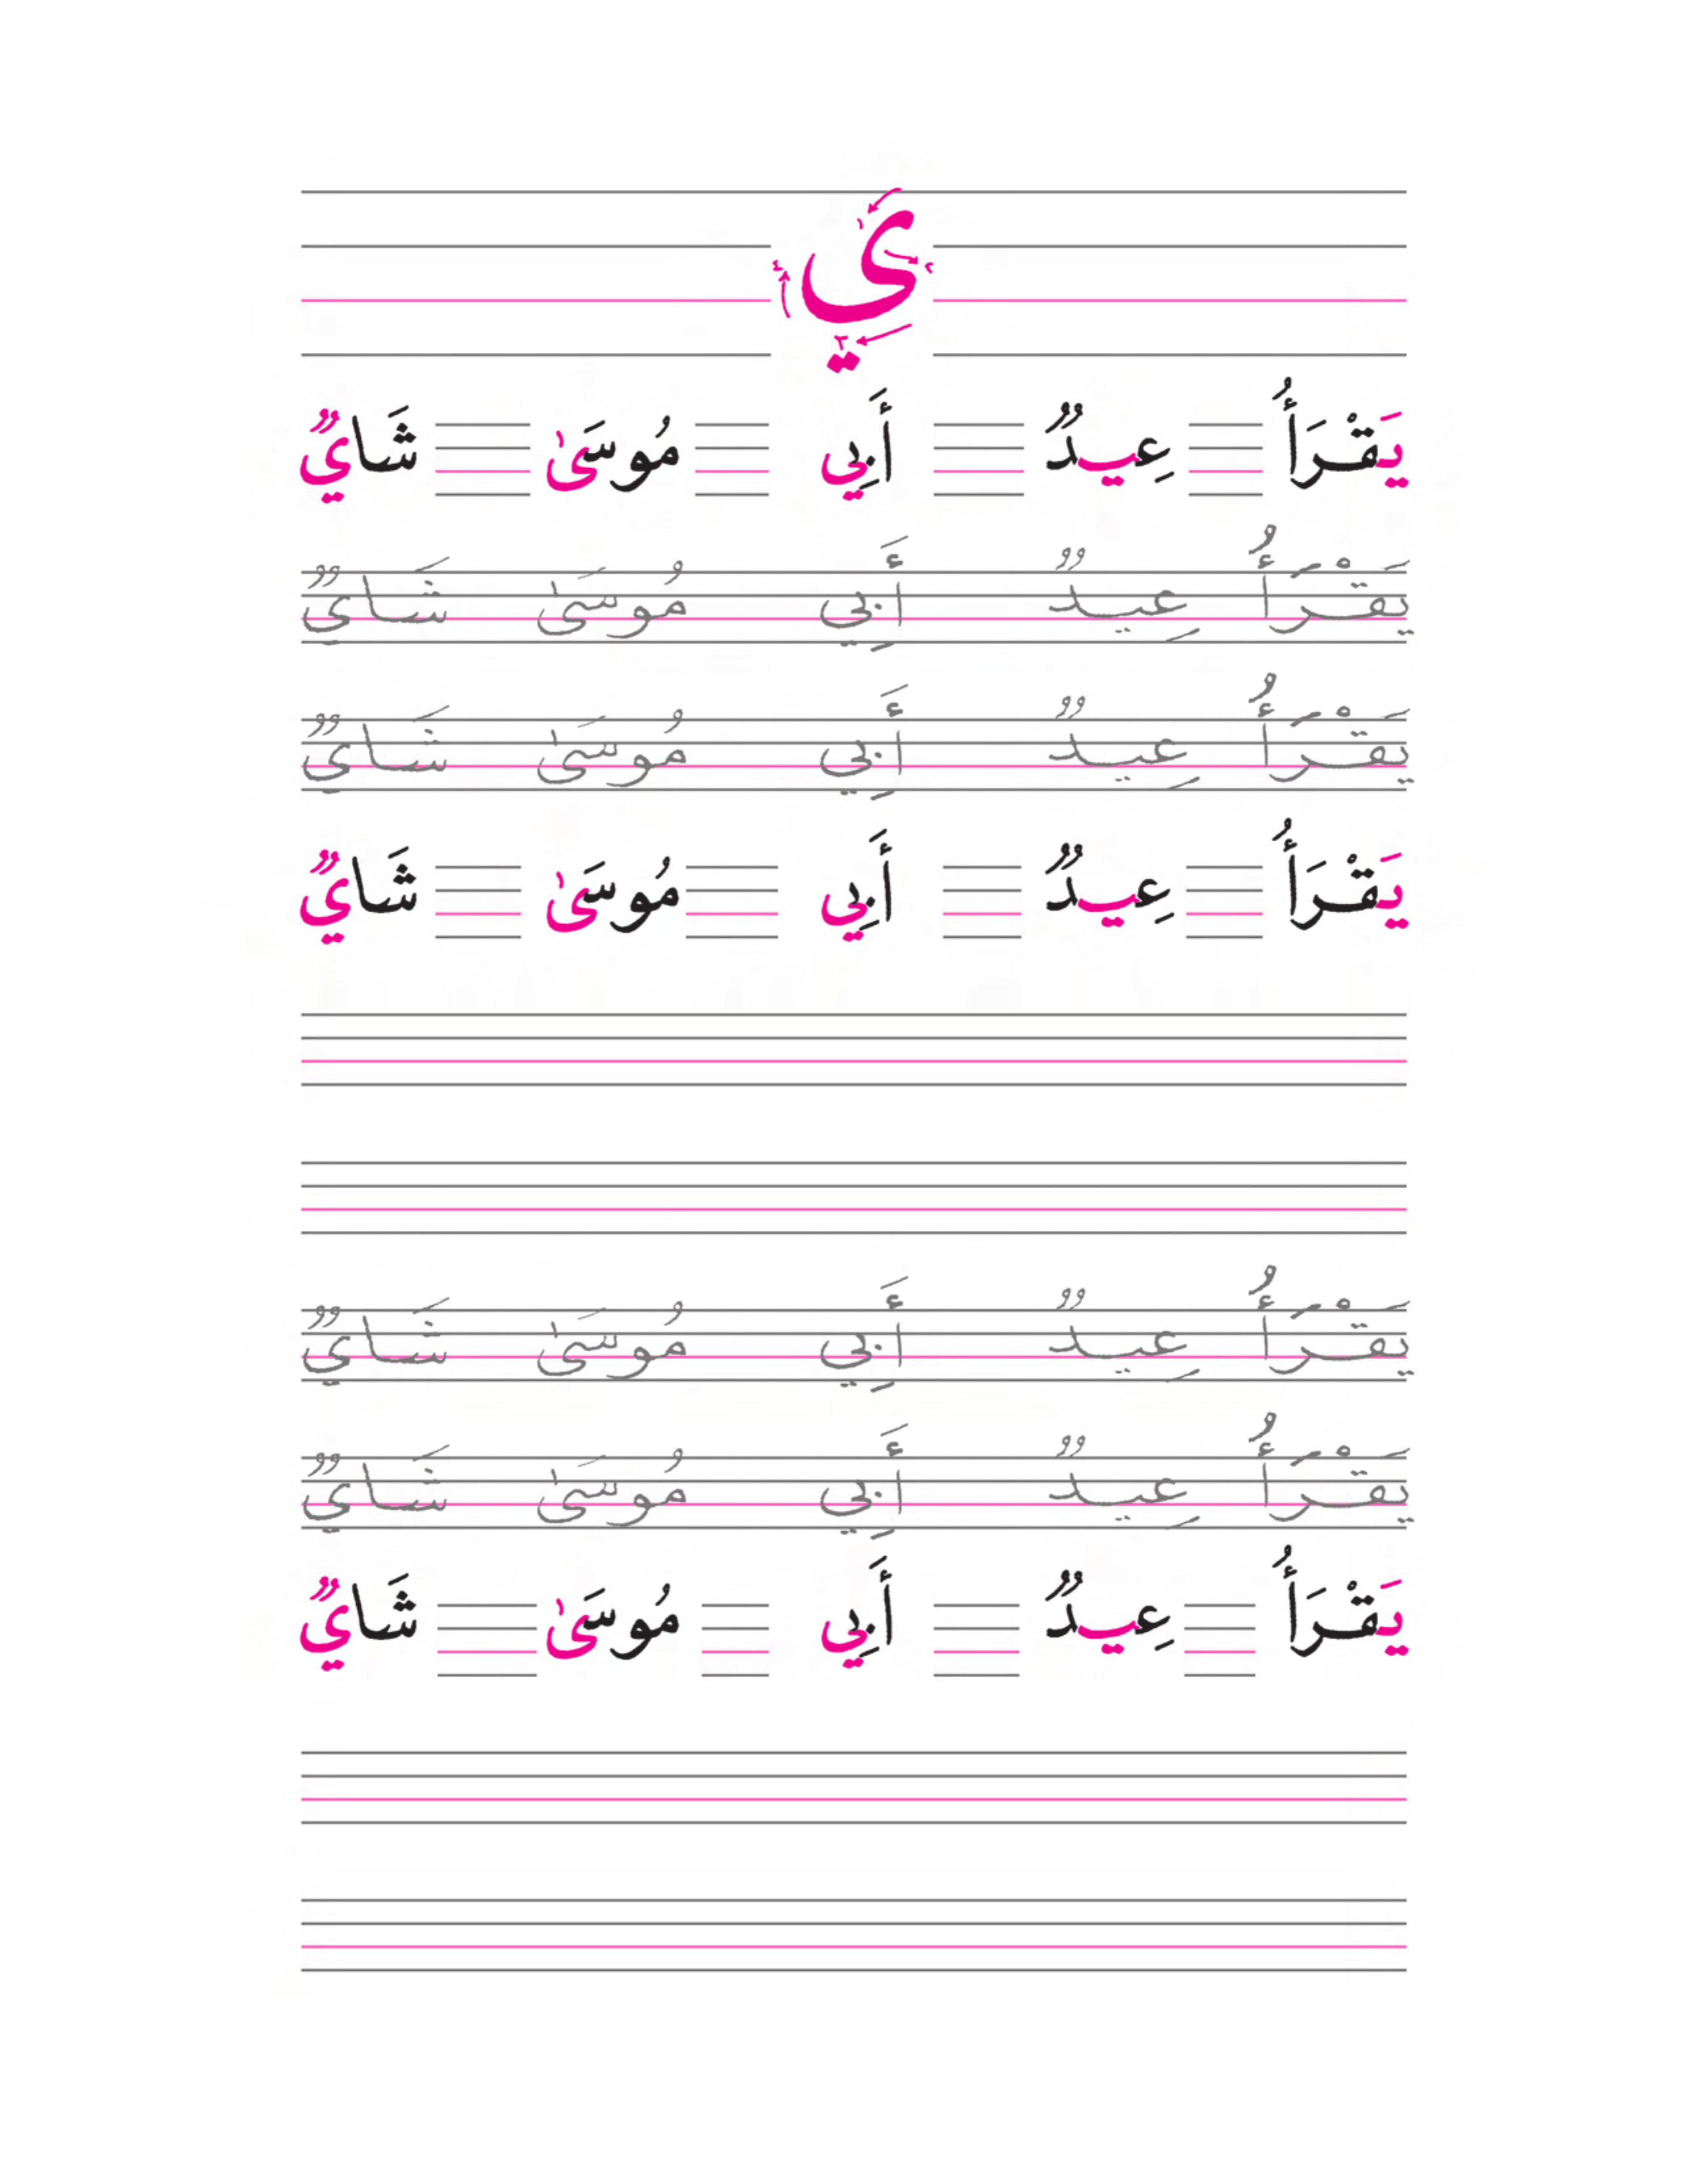 ي
يَقْرَأُ عِيدٌ أَبِي مُوسَىٰ شَايٌ
يَقْرَأُ عِيدٌ أَبِي مُوسَىٰ شَايٌ
يَقْرَأُ عِيدٌ أَبِي مُوسَىٰ شَايٌ
يَقْرَأُ عِيدٌ أَبِي مُوسَىٰ شَايٌ
يَقْرَأُ عِيدٌ أَبِي مُوسَىٰ شَايٌ
يَقْرَأُ عِيدٌ أَبِي مُوسَىٰ شَايٌ
يَقْرَأُ عِيدٌ أَبِي مُوسَىٰ شَايٌ